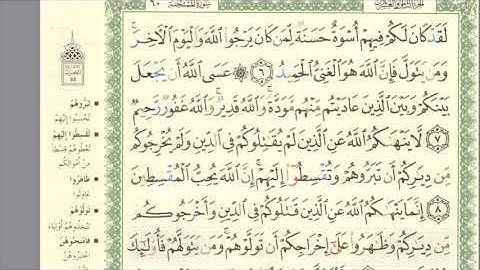 ٦٠ سُورَةُ المُمْتَحنَة
لَقَدْ كَانَ لَكُمْ فِيهِمْ أُسْوَةٌ حَسَنَةٌ لِّمَن كَانَ يَرْجُوا۟ ٱللَّهَ وَٱلْيَوْمَ ٱلْـَٔاخِرَ ۚ
وَمَن يَتَوَلَّ فَإِنَّ ٱللَّهَ هُوَ ٱلْغَنِىُّ ٱلْحَمِيدُ ٦ ۞ عَسَى ٱللَّهُ أَن يَجْعَلَ
بَيْنَكُمْ وَبَيْنَ ٱلَّذِينَ عَادَيْتُم مِّنْهُم مَّوَدَّةً ۚ وَٱللَّهُ قَدِيرٌ ۚ وَٱللَّهُ غَفُورٌ رَّحِيمٌ
٧ لَّا يَنْهَىٰكُمُ ٱللَّهُ عَنِ ٱلَّذِينَ لَمْ يُقَـٰتِلُوكُمْ فِى ٱلدِّينِ وَلَمْ يُخْرِجُوكُم
مِّن دِيَـٰرِكُمْ أَن تَبَرُّوهُمْ وَتُقْسِطُوٓا۟ إِلَيْهِمْ ۚ إِنَّ ٱللَّهَ يُحِبُّ ٱلْمُقْسِطِينَ
٨ إِنَّمَا يَنْهَىٰكُمُ ٱللَّهُ عَنِ ٱلَّذِينَ قَـٰتَلُوكُمْ فِى ٱلدِّينِ وَأَخْرَجُوكُم
مِّن دِيَـٰرِكُمْ وَظَـٰهَرُوا۟ عَلَىٰٓ إِخْرَاجِكُمْ أَن تَوَلَّوْهُمْ ۚ وَمَن يَتَوَلَّهُمْ فَأُو۟لَـٰٓئِكَ
تَبَرُّوهُمْ
تُحْسِنُوا إِلَيْهِمْ
تُقْسِطُوا إِلَيْهِمْ
مِنْ أَمْوَالِكُمْ
ظَاهَرُوا
تَوَلَّوْهُمْ